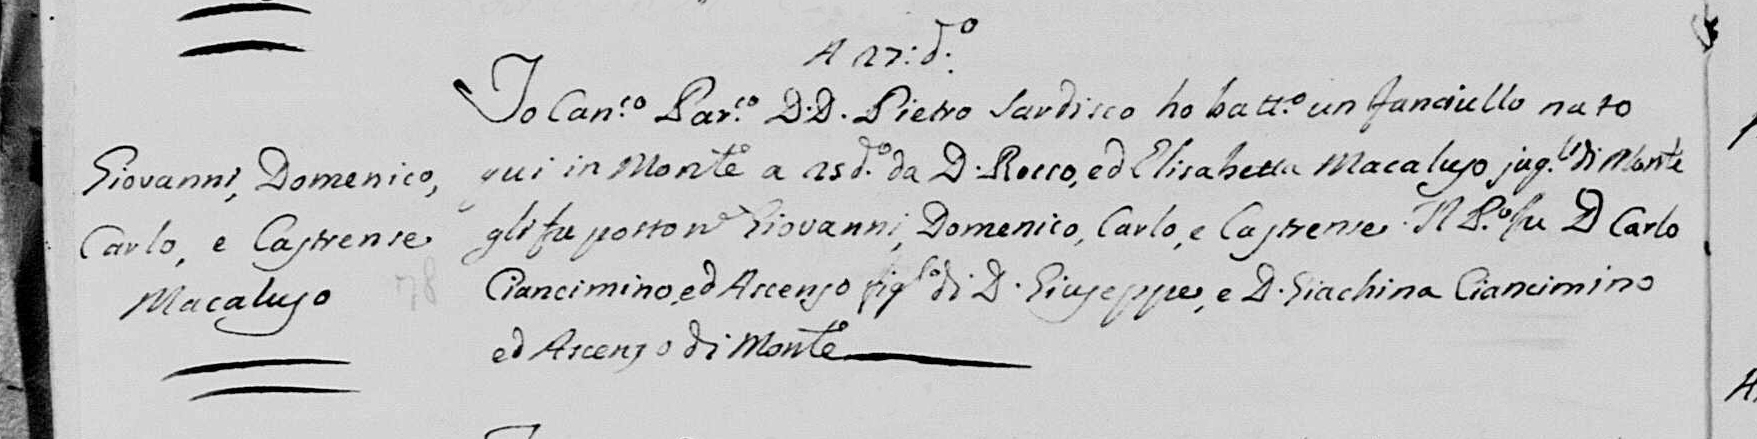 A 27: d:º
Io Can.co Par.co D.D. Pietro Sardisco ho batt.º un fanciullo nato
Giovanni, Domenico, qui in Monte a 25 d.º da D. Rocco, ed Elisabetta Macaluso jug.li di Monte
Carlo, e Castrense gli fu posto nº Giovanni, Domenico, Carlo, e Castrense. Il P.º fu D Carlo
Macaluso 78 Ciancimino, ed Ascenzo figlº di D. Giuseppe, e D. Giachina Ciancimino
ed Ascenzo di Monte